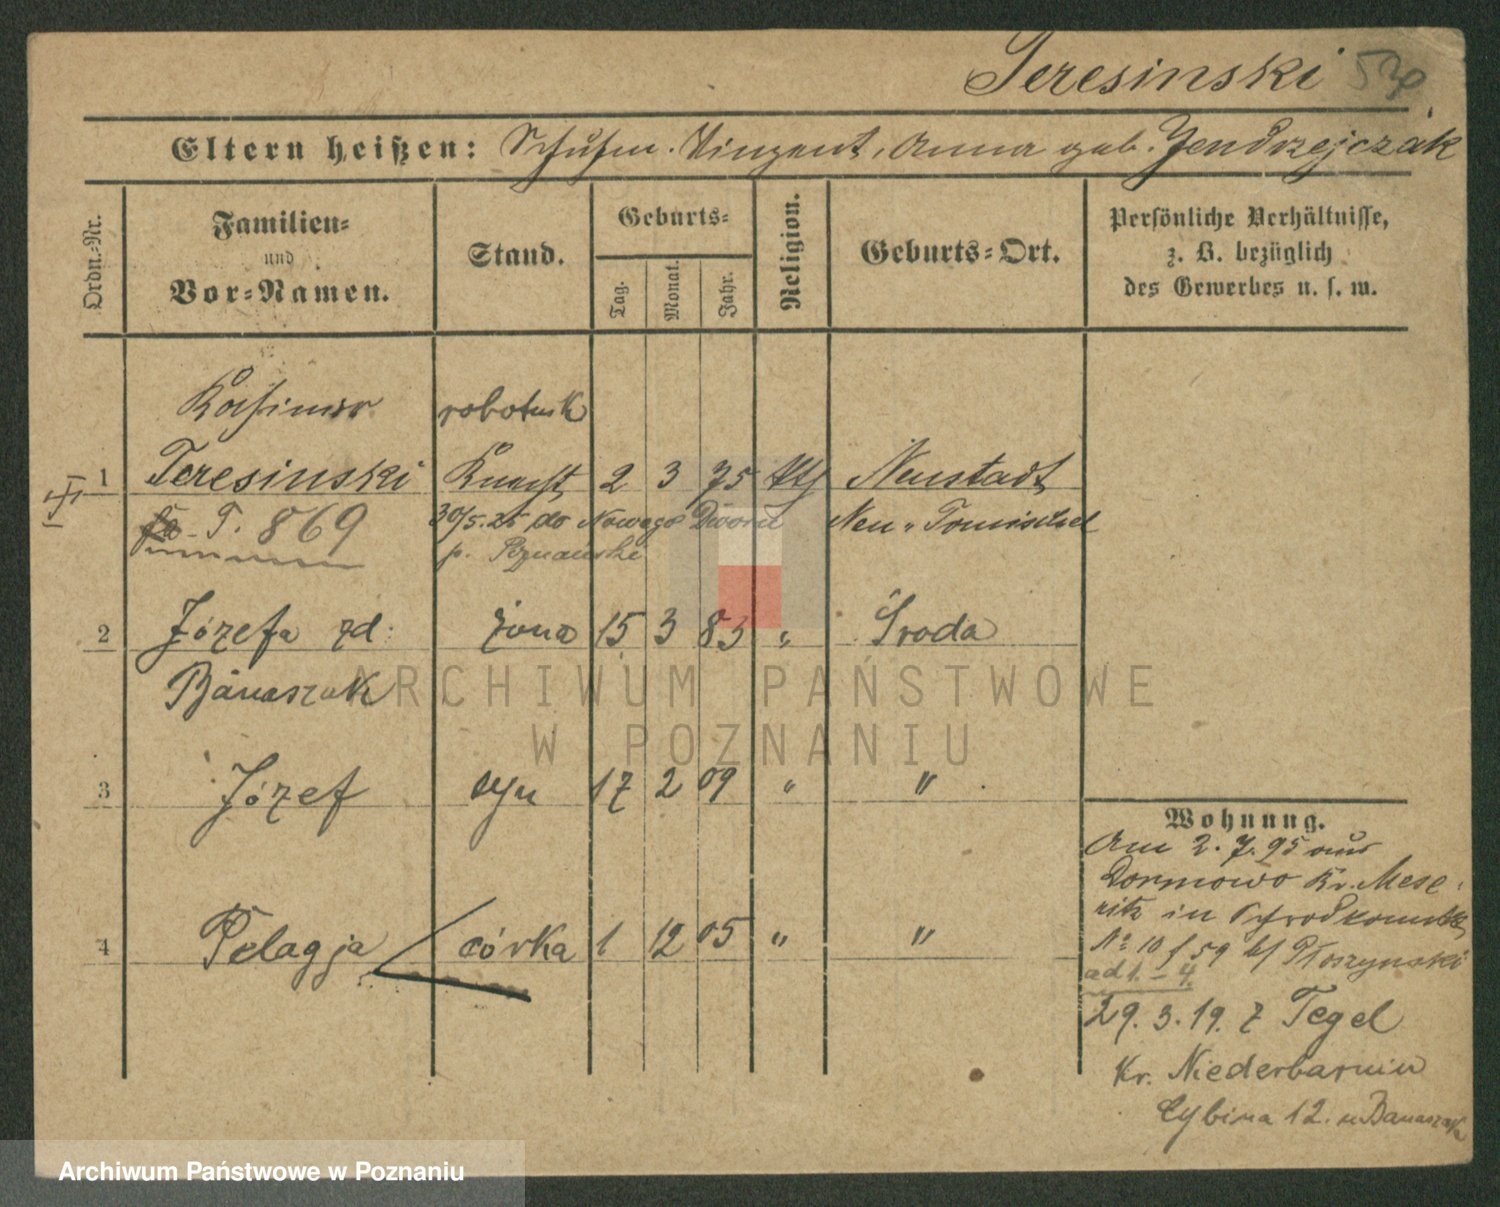 Teresinski
Eltern heißen: Vinzent, Anna geb. Jendrzejczak
Ordn.-Nr.
Familien-
und
Vor-Namen.
Stand.
Geburts-
Tag.
Monat.
Jahr.
Religion.
Geburts-Ort.
Persönliche Verhältnisse,
z. B. bezüglich
des Gewerbes u. s. w.
Kasimir robotnik
1 Teresinski Knecht 2 3 75 kth Neustadt
T. 869 30/5.25 do Nowego Dworu Neu-Tomischel
p. Poznański
2 Józefa zd. żona 15 3 83 " Środa
Banaszak
3 Józef syn 17 2 09 " "
4 Pelagja córka 1 12 05 " "
Wohnung.
Am 2.7.95 aus
Dormowo Kr. Mese-
ritz in Schrodkamarkt
No 10 f 59 b/ Płoszynski
ad 1.-4.
29.3.19. z Tegel
Kr. Niederbarnim
Cybina 12. u Banaszak
ARCHIWUM PAŃSTWOWE
W POZNANIU
Archiwum Państwowe w Poznaniu